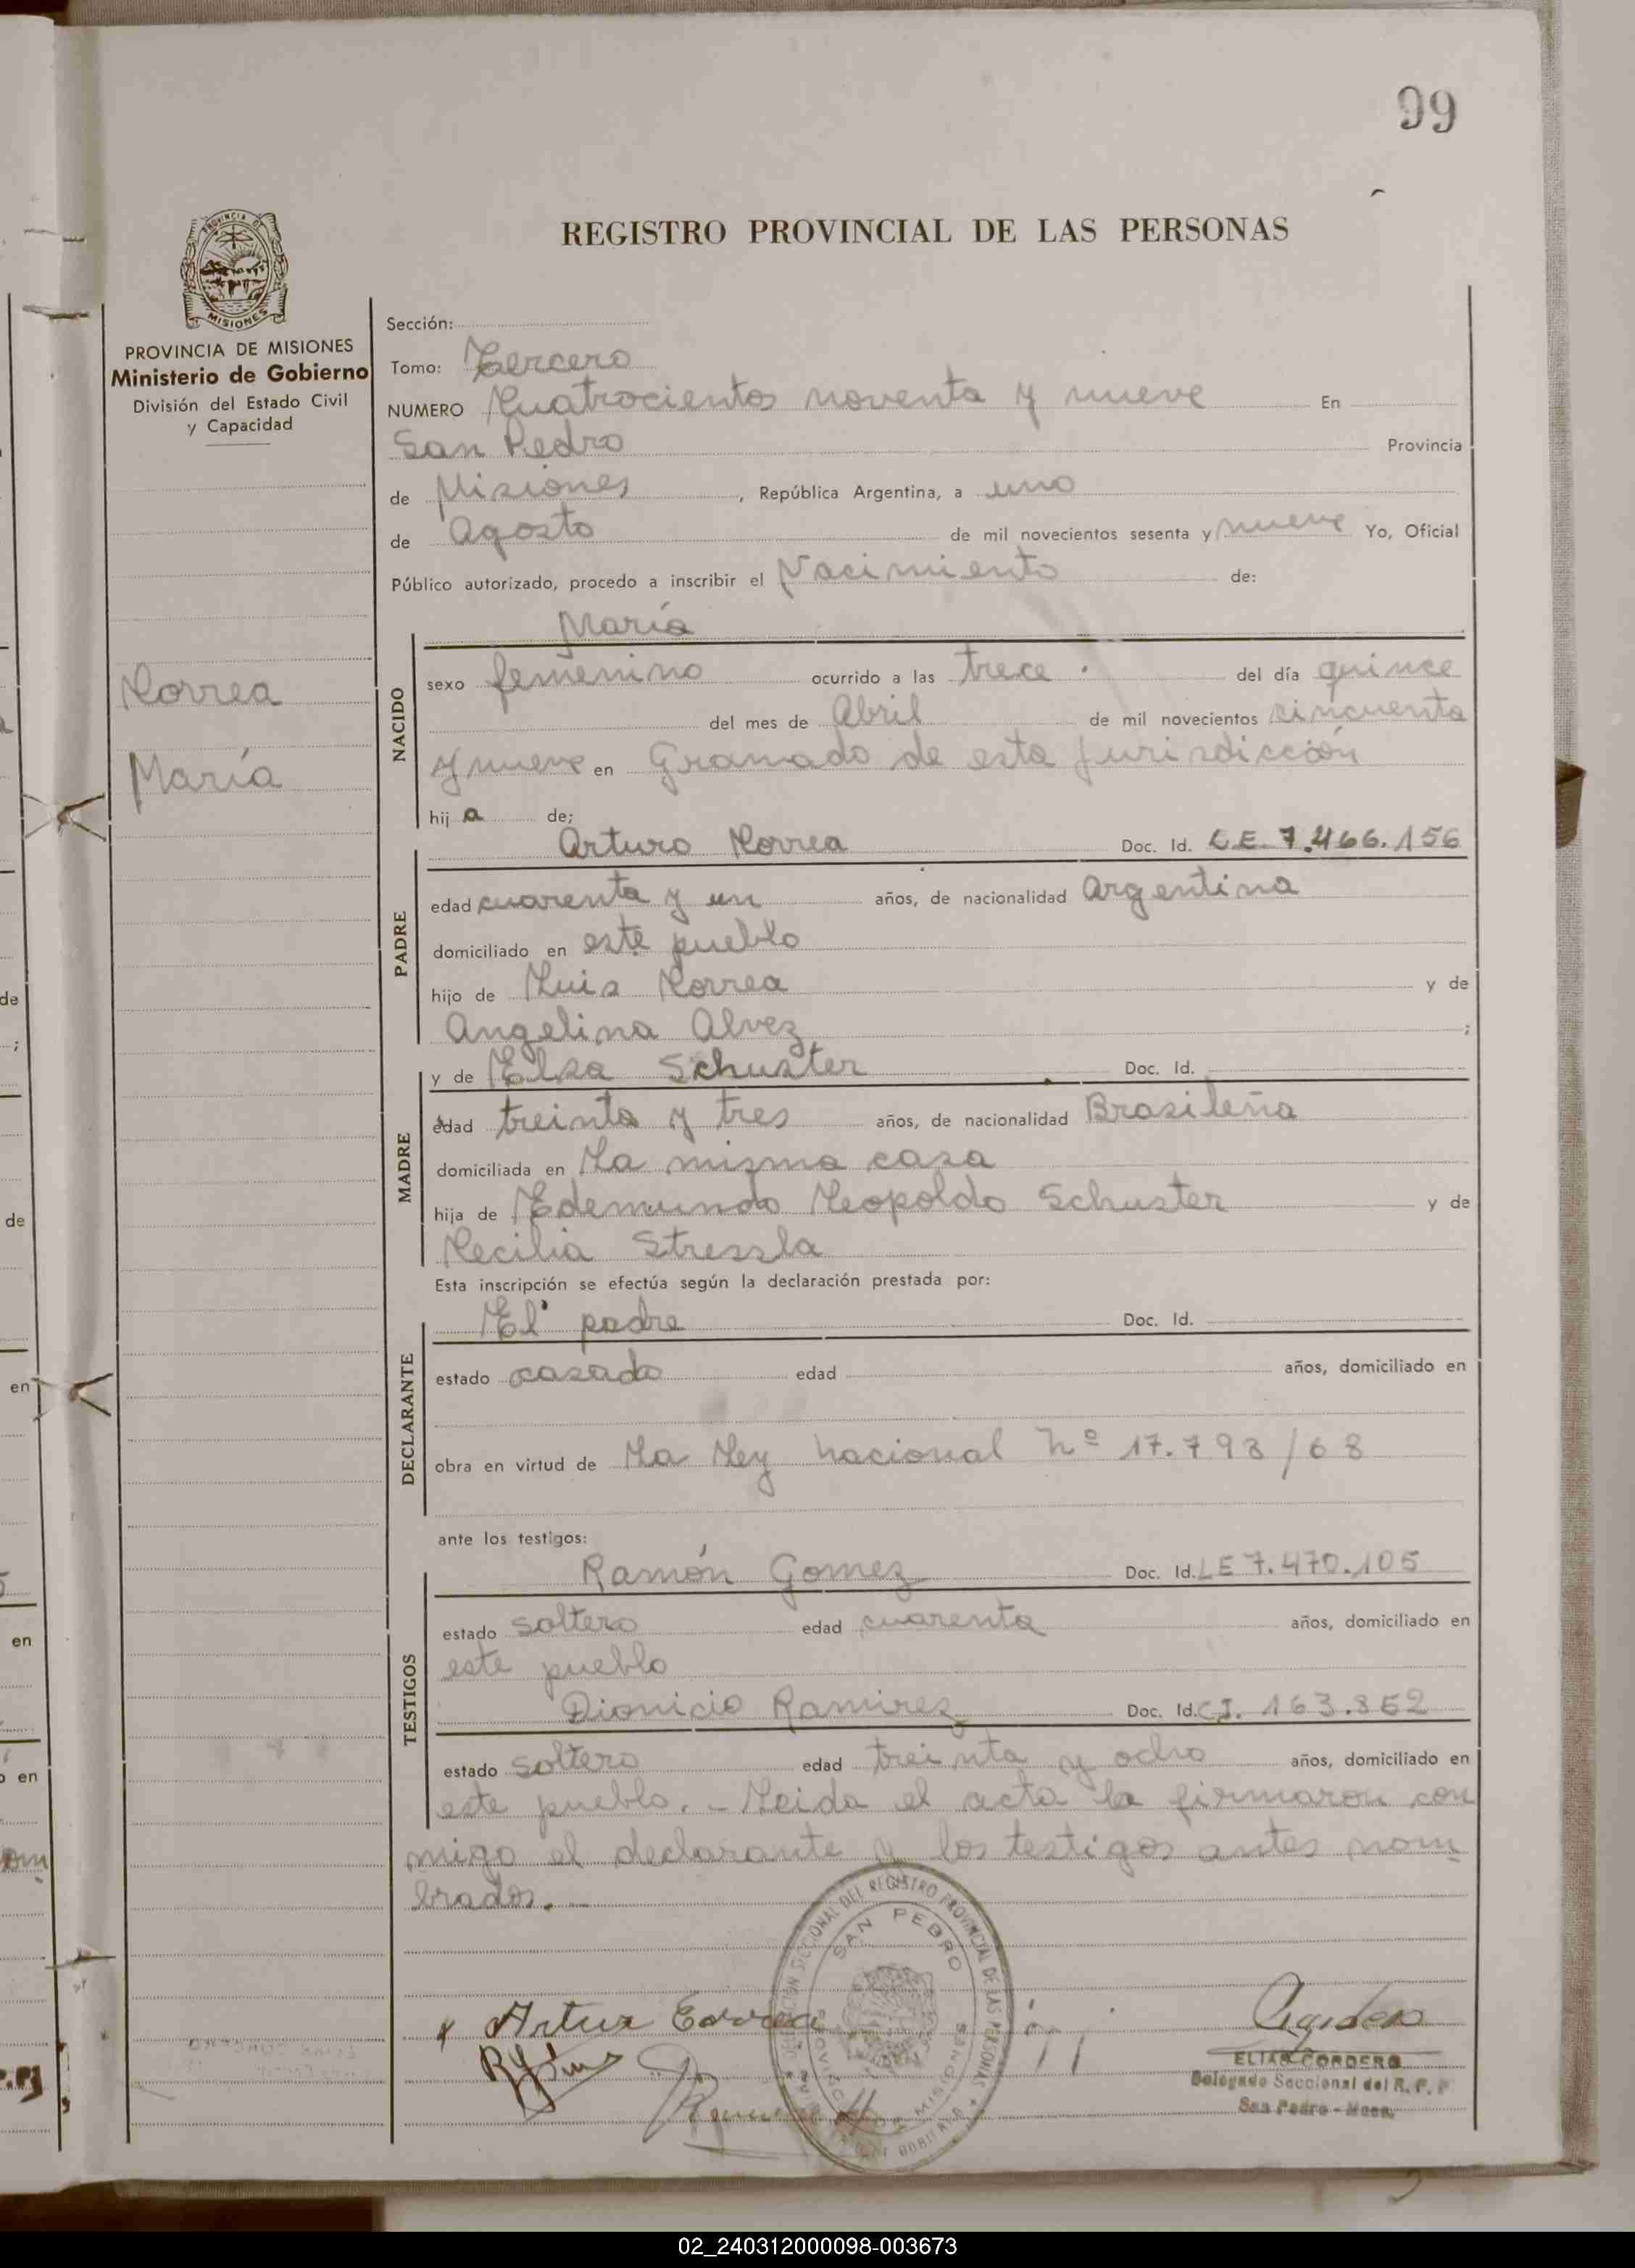 99
REGISTRO PROVINCIAL DE LAS PERSONAS
PROVINCIA DE MISIONES
Ministerio de Gobierno
División del Estado Civil
y Capacidad
Correa
María
Sección:
Tomo: Tercero
NUMERO Cuatrocientos noventa y nueve En
San Pedro Provincia
de Misiones, República Argentina, a uno
de Agosto de mil novecientos sesenta y nueve Yo, Oficial
Público autorizado, procedo a inscribir el Nacimiento de:
María
NACIDO
sexo femenino ocurrido a las trece del día quince
del mes de Abril de mil novecientos cincuenta
y nueve en Gramado de esta Jurisdicción
hij a de;
Arturo Correa Doc. Id. L.E. 7.466.156
PADRE
edad cuarenta y un años, de nacionalidad Argentina
domiciliado en este pueblo
hijo de Luis Correa y de
Angelina Alvez ;
y de Elsa Schuster Doc. Id.
MADRE
edad treinta y tres años, de nacionalidad Brasileña
domiciliada en La misma casa
hija de Edemundo Leopoldo Schuster y de
Cecilia Stressla
Esta inscripción se efectúa según la declaración prestada por:
El padre Doc. Id.
DECLARANTE
estado casado edad años, domiciliado en
obra en virtud de La Ley nacional Nº 17.793/68
ante los testigos:
Ramón Gomez Doc. Id. LE 7.470.105
TESTIGOS
estado soltero edad cuarenta años, domiciliado en
este pueblo
Dionicio Ramirez Doc. Id. CI. 163.852
estado soltero edad treinta y ocho años, domiciliado en
este pueblo. - Leida el acta la firmaron con
migo el declarante y los testigos antes nom
brados. -
DELEGACIÓN SECCIONAL DEL REGISTRO PROVINCIAL DE LAS PERSONAS
SAN PEDRO
PROVINCIA DE MISIONES
x Artur Correa
ELIAS CORDERO
Delegado Seccional del R. P. P
San Pedro - Mnes.
02_240312000098-003673